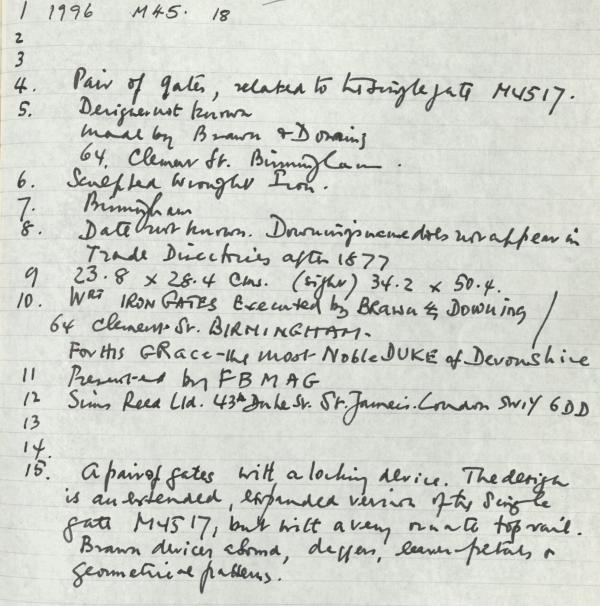 1 1996 M45. 18
2
3
4. Pair of gates, related to the single gate M4517.
5. Designer not known
made by Brawn & Downing
64, Clement St. Birmingham.
6. Sculpted Wrought Iron.
7. Birmingham
8. Date not known. Downing's name does not appear in
Trade Directories after 1877
9 23.8 x 28.4 Cms. (sight) 34.2 x 50.4.
10. WRT IRON GATES Executed by BRAWN & DOWNING
64 Clement St. BIRMINGHAM.
For His GRace - the most Noble DUKE of Devonshire
11 Presented by FBMAG
12 Sims Reed Ltd. 43A Duke St. St. James's. London SW1Y 6DD
13
14.
15. A pair of gates with a locking device. The design
is an extended, expanded version of the Single
gate M4517, but with a very ornate top rail.
Brawn devices abound, daggers, leaves petals &
geometrical patterns.